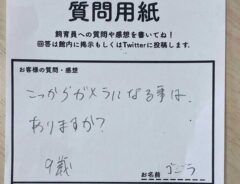 質問用紙
飼育員への質問や感想を書いてね！
回答は館内に掲示もしくはTwitterに投稿します.
お客様の質問・感想
こっからガメラになる事は、
ありますか?
9歳
お名前 ゴジラ